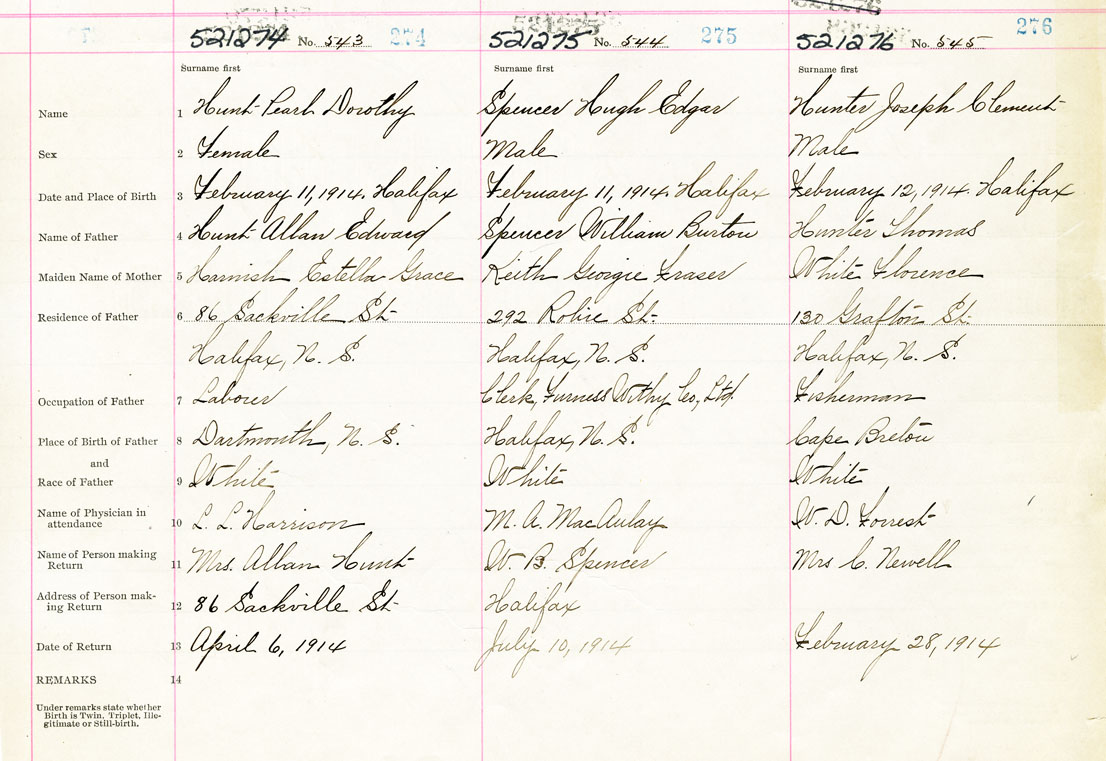 521274 No. 543 274 521275 No. 544 275 521276 No. 545 276
Surname first Surname first Surname first
Name 1 Hunt Pearl Dorothy Spencer Hugh Edgar Hunter Joseph Clement
Sex 2 Female Male Male
Date and Place of Birth 3 February 11, 1914. Halifax February 11, 1914. Halifax February 12, 1914. Halifax
Name of Father 4 Hunt Allan Edward Spencer William Burton Hunter Thomas
Maiden Name of Mother 5 Harnish Estella Grace Keith Georgie Fraser White Florence
Residence of Father 6 86 Sackville St. 292 Robie St. 130 Grafton St.
Halifax, N. S. Halifax, N. S. Halifax, N. S.
Occupation of Father 7 Laborer Clerk, Furness Withy Co., Ltd. Fisherman
Place of Birth of Father 8 Dartmouth, N. S. Halifax, N. S. Cape Breton
and
Race of Father 9 White White White
Name of Physician in
attendance 10 L. L. Harrison M. A. MacAulay W. D. Forrest
Name of Person making
Return 11 Mrs. Allan Hunt W. B. Spencer Mrs C. Newell
Address of Person mak-
ing Return 12 86 Sackville St. Halifax
Date of Return 13 April 6, 1914 July 10, 1914 February 28, 1914
REMARKS 14
Under remarks state whether
Birth is Twin, Triplet, Ille-
gitimate or Still-birth.